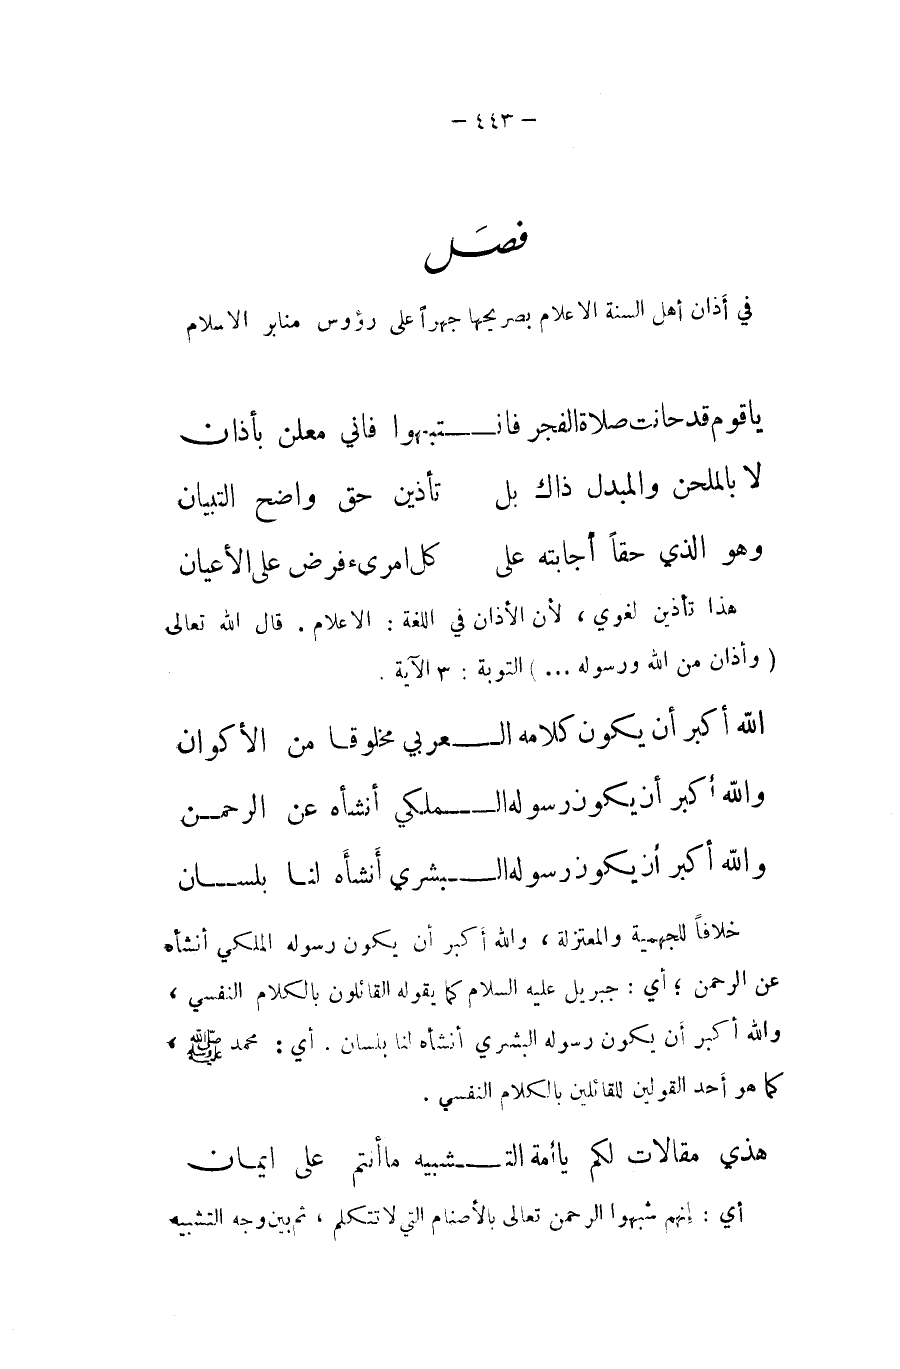 - ٤٤٣ -
فصَل
في أذان أهل السنة الاعلام بصريحها جهراً على رؤوس منابر الاسلام
ياقوم قد حانت صلاة الفجر فانـــتبهوا فاني معلن بأذان
لا بالملحن والمبدل ذاك بل تأذين حق واضح التبيان
وهو الذي حقاً أجابته على كل امرىء فرض على الأعيان
هذا تأذين لغوي ، لأن الأذان في اللغة : الاعلام . قال الله تعالى
( وأذان من الله ورسوله ... ) التوبة : ٣ الآية .
الله أكبر أن يكون كلامه الـــعربي مخلوقا من الأكوان
والله أكبر أن يكون رسوله الـــملكي أنشأه عن الرحمن
والله أكبر أن يكون رسوله الـــبشري أنشأه لنا بلسان
خلافاً للجهمية والمعتزلة ، والله أكبر أن يكون رسوله الملكي أنشأه
عن الرحمن ؛ أي : جبريل عليه السلام كما يقوله القائلون بالكلام النفسي ،
والله أكبر أن يكون رسوله البشري أنشأه لنا بلسان . أي : محمد ﷺ ،
كما هو أحد القولين للقائلين بالكلام النفسي .
هذي مقالات لكم ياأمة التـــشبيه ماأنتم على ايمان
أي : إنهم شبهوا الرحمن تعالى بالأصنام التي لا تتكلم ، ثم بين وجه التشبيه